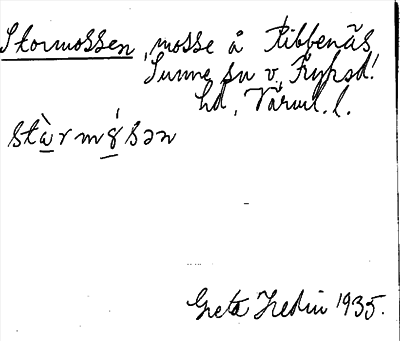 Stormossen, mosse å Ribbenäs,
Sunne sn v., Fryksd.
hd, Värml. l.
stàrmósən
Greta Hedin 1935.